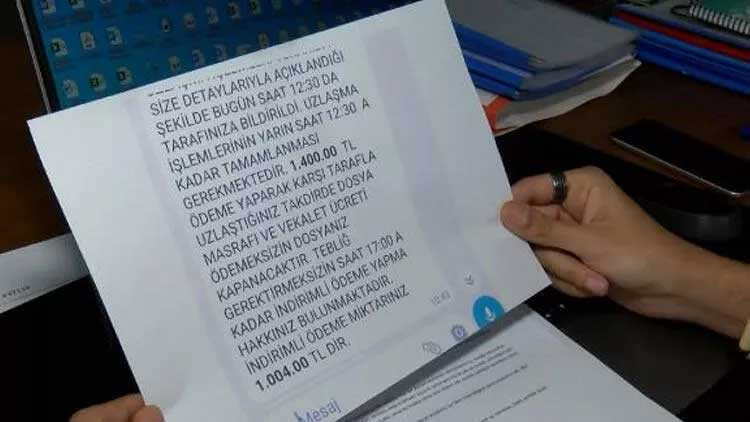 SİZE DETAYLARIYLA AÇIKLANDIĞI
ŞEKİLDE BUGÜN SAAT 12:30 DA
TARAFINIZA BİLDİRİLDİ. UZLAŞMA
İŞLEMLERİNİN YARIN SAAT 12:30 A
KADAR TAMAMLANMASI
GEREKMEKTEDİR. 1.400.00 TL
ÖDEME YAPARAK KARŞI TARAFLA
UZLAŞTIĞINIZ TAKDİRDE DOSYA
MASRAFI VE VEKALET ÜCRETİ
ÖDEMEKSİZİN DOSYANIZ
KAPANACAKTIR. TEBLİĞ
GEREKTİRMEKSİZİN SAAT 17:00 A
KADAR İNDİRİMLİ ÖDEME YAPMA
HAKKINIZ BULUNMAKTADIR.
İNDİRİMLİ ÖDEME MİKTARINIZ
1.004.00 TL DİR.
12:43
Mesaj